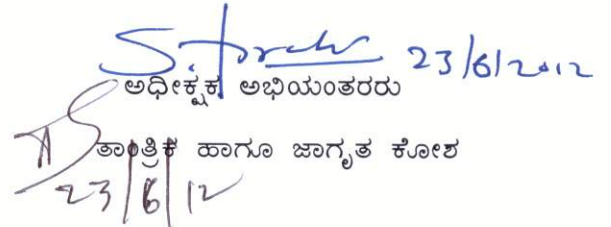 23/6/2012
ಅಧೀಕ್ಷಕ ಅಭಿಯಂತರರು
ತಾಂತ್ರಿಕ ಹಾಗೂ ಜಾಗೃತ ಕೋಶ
23/6/12